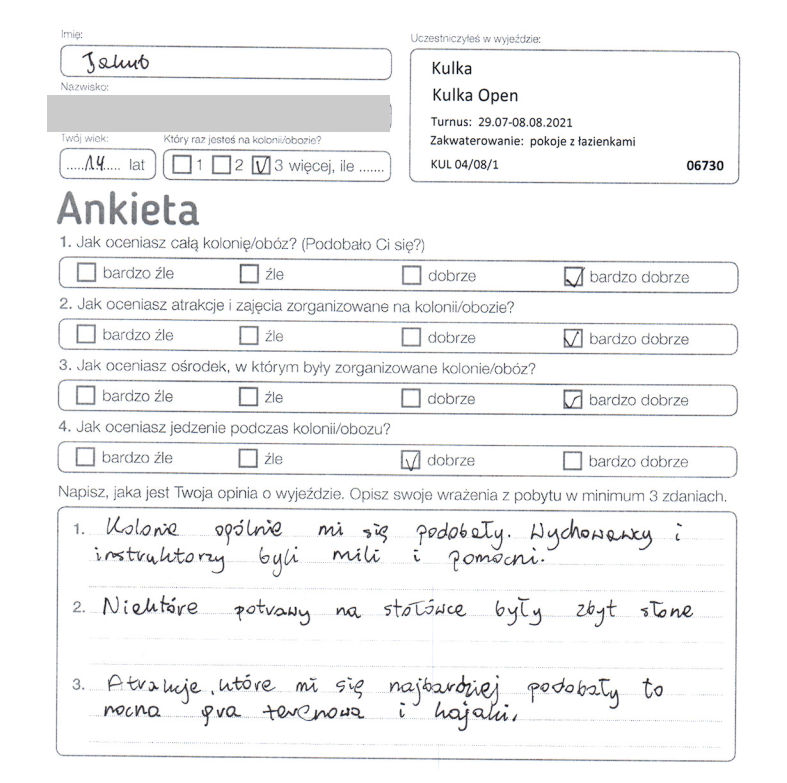 Imię:
Jakub
Nazwisko:
Twój wiek:
Który raz jesteś na kolonii/obozie?
.....14..... lat
1 2 3 więcej, ile .......
Uczestniczyłeś w wyjeździe:
Kulka
Kulka Open
Turnus: 29.07-08.08.2021
Zakwaterowanie: pokoje z łazienkami
KUL 04/08/1 06730
Ankieta
1. Jak oceniasz całą kolonię/obóz? (Podobało Ci się?)
bardzo źle źle dobrze bardzo dobrze
2. Jak oceniasz atrakcje i zajęcia zorganizowane na kolonii/obozie?
bardzo źle źle dobrze bardzo dobrze
3. Jak oceniasz ośrodek, w którym były zorganizowane kolonie/obóz?
bardzo źle źle dobrze bardzo dobrze
4. Jak oceniasz jedzenie podczas kolonii/obozu?
bardzo źle źle dobrze bardzo dobrze
Napisz, jaka jest Twoja opinia o wyjeździe. Opisz swoje wrażenia z pobytu w minimum 3 zdaniach.
1. Kolonie ogólnie mi się podobały. Wychowawcy i
instruktorzy byli mili i pomocni.
2. Niektóre potrawy na stołówce były zbyt słone
3. Atrakcje, które mi się najbardziej podobały to
nocna gra terenowa i kajaki.